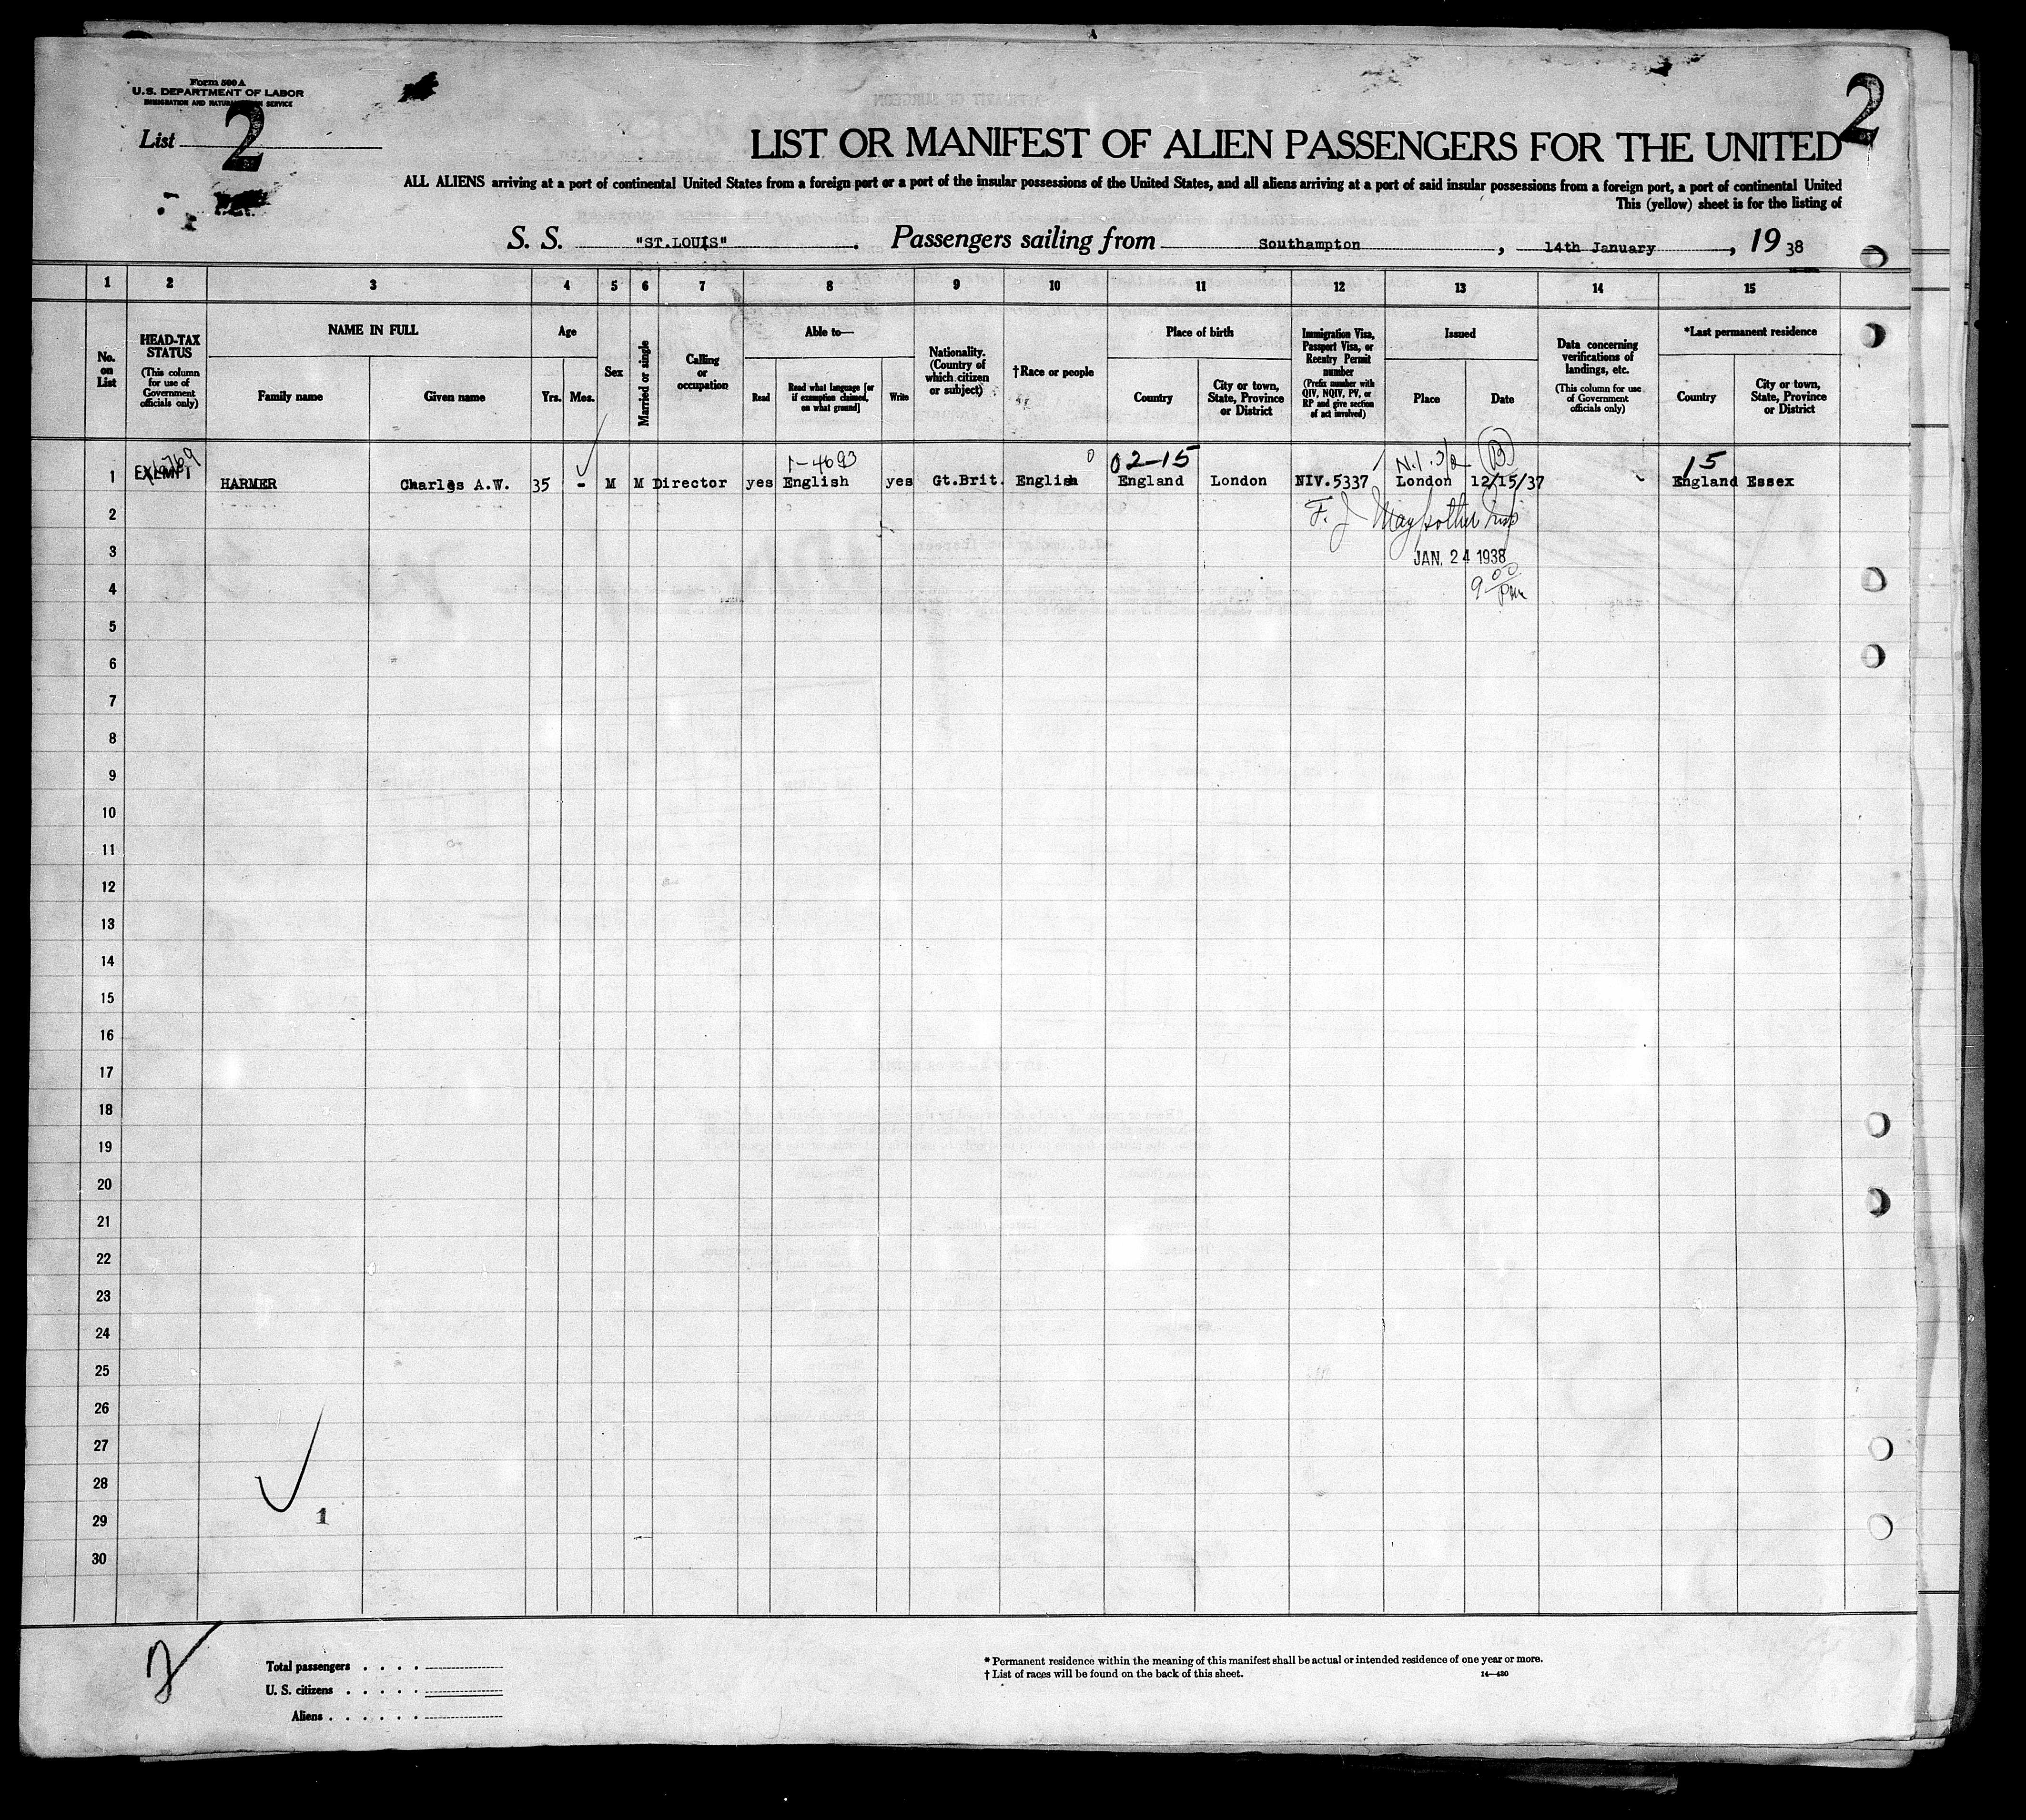 Form 500 A
U.S. DEPARTMENT OF LABOR
IMMIGRATION AND NATURALIZATION SERVICE
List 2
2
LIST OR MANIFEST OF ALIEN PASSENGERS FOR THE UNITED
ALL ALIENS arriving at a port of continental United States from a foreign port or a port of the insular possessions of the United States, and all aliens arriving at a port of said insular possessions from a foreign port, a port of continental United
This (yellow) sheet is for the listing of
S. S. "ST.LOUIS". Passengers sailing from Southampton, 14th January, 1938
1 2 3 4 5 6 7 8 9 10 11 12 13 14 15
No. on List
HEAD-TAX STATUS (This column for use of Government officials only)
NAME IN FULL
Family name
Given name
Age
Yrs. Mos.
Sex
Married or single
Calling or occupation
Able to—
Read
Read what language [or if exemption claimed, on what ground]
Write
Nationality. (Country of which citizen or subject)
†Race or people
Place of birth
Country
City or town, State, Province or District
Immigration Visa, Passport Visa, or Reentry Permit number (Prefix number with QIV, NQIV, PV, or RP and give section of act involved)
Issued
Place
Date
Data concerning verifications of landings, etc. (This column for use of Government officials only)
*Last permanent residence
Country
City or town, State, Province or District
1-4693 0 02-15 15
1 EXEMPT HARMER Charles A.W. 35 - M M Director yes English yes Gt.Brit. English England London NIV.5337 London 12/15/37 England Essex
2
3 JAN. 24 1938
4 9 00 pm
5
6
7
8
9
10
11
12
13
14
15
16
17
18
19
20
21
22
23
24
25
26
27
28
29 1
30
2
Total passengers . . . .
U. S. citizens . . . . .
Aliens . . . . . .
* Permanent residence within the meaning of this manifest shall be actual or intended residence of one year or more.
† List of races will be found on the back of this sheet. 14—430